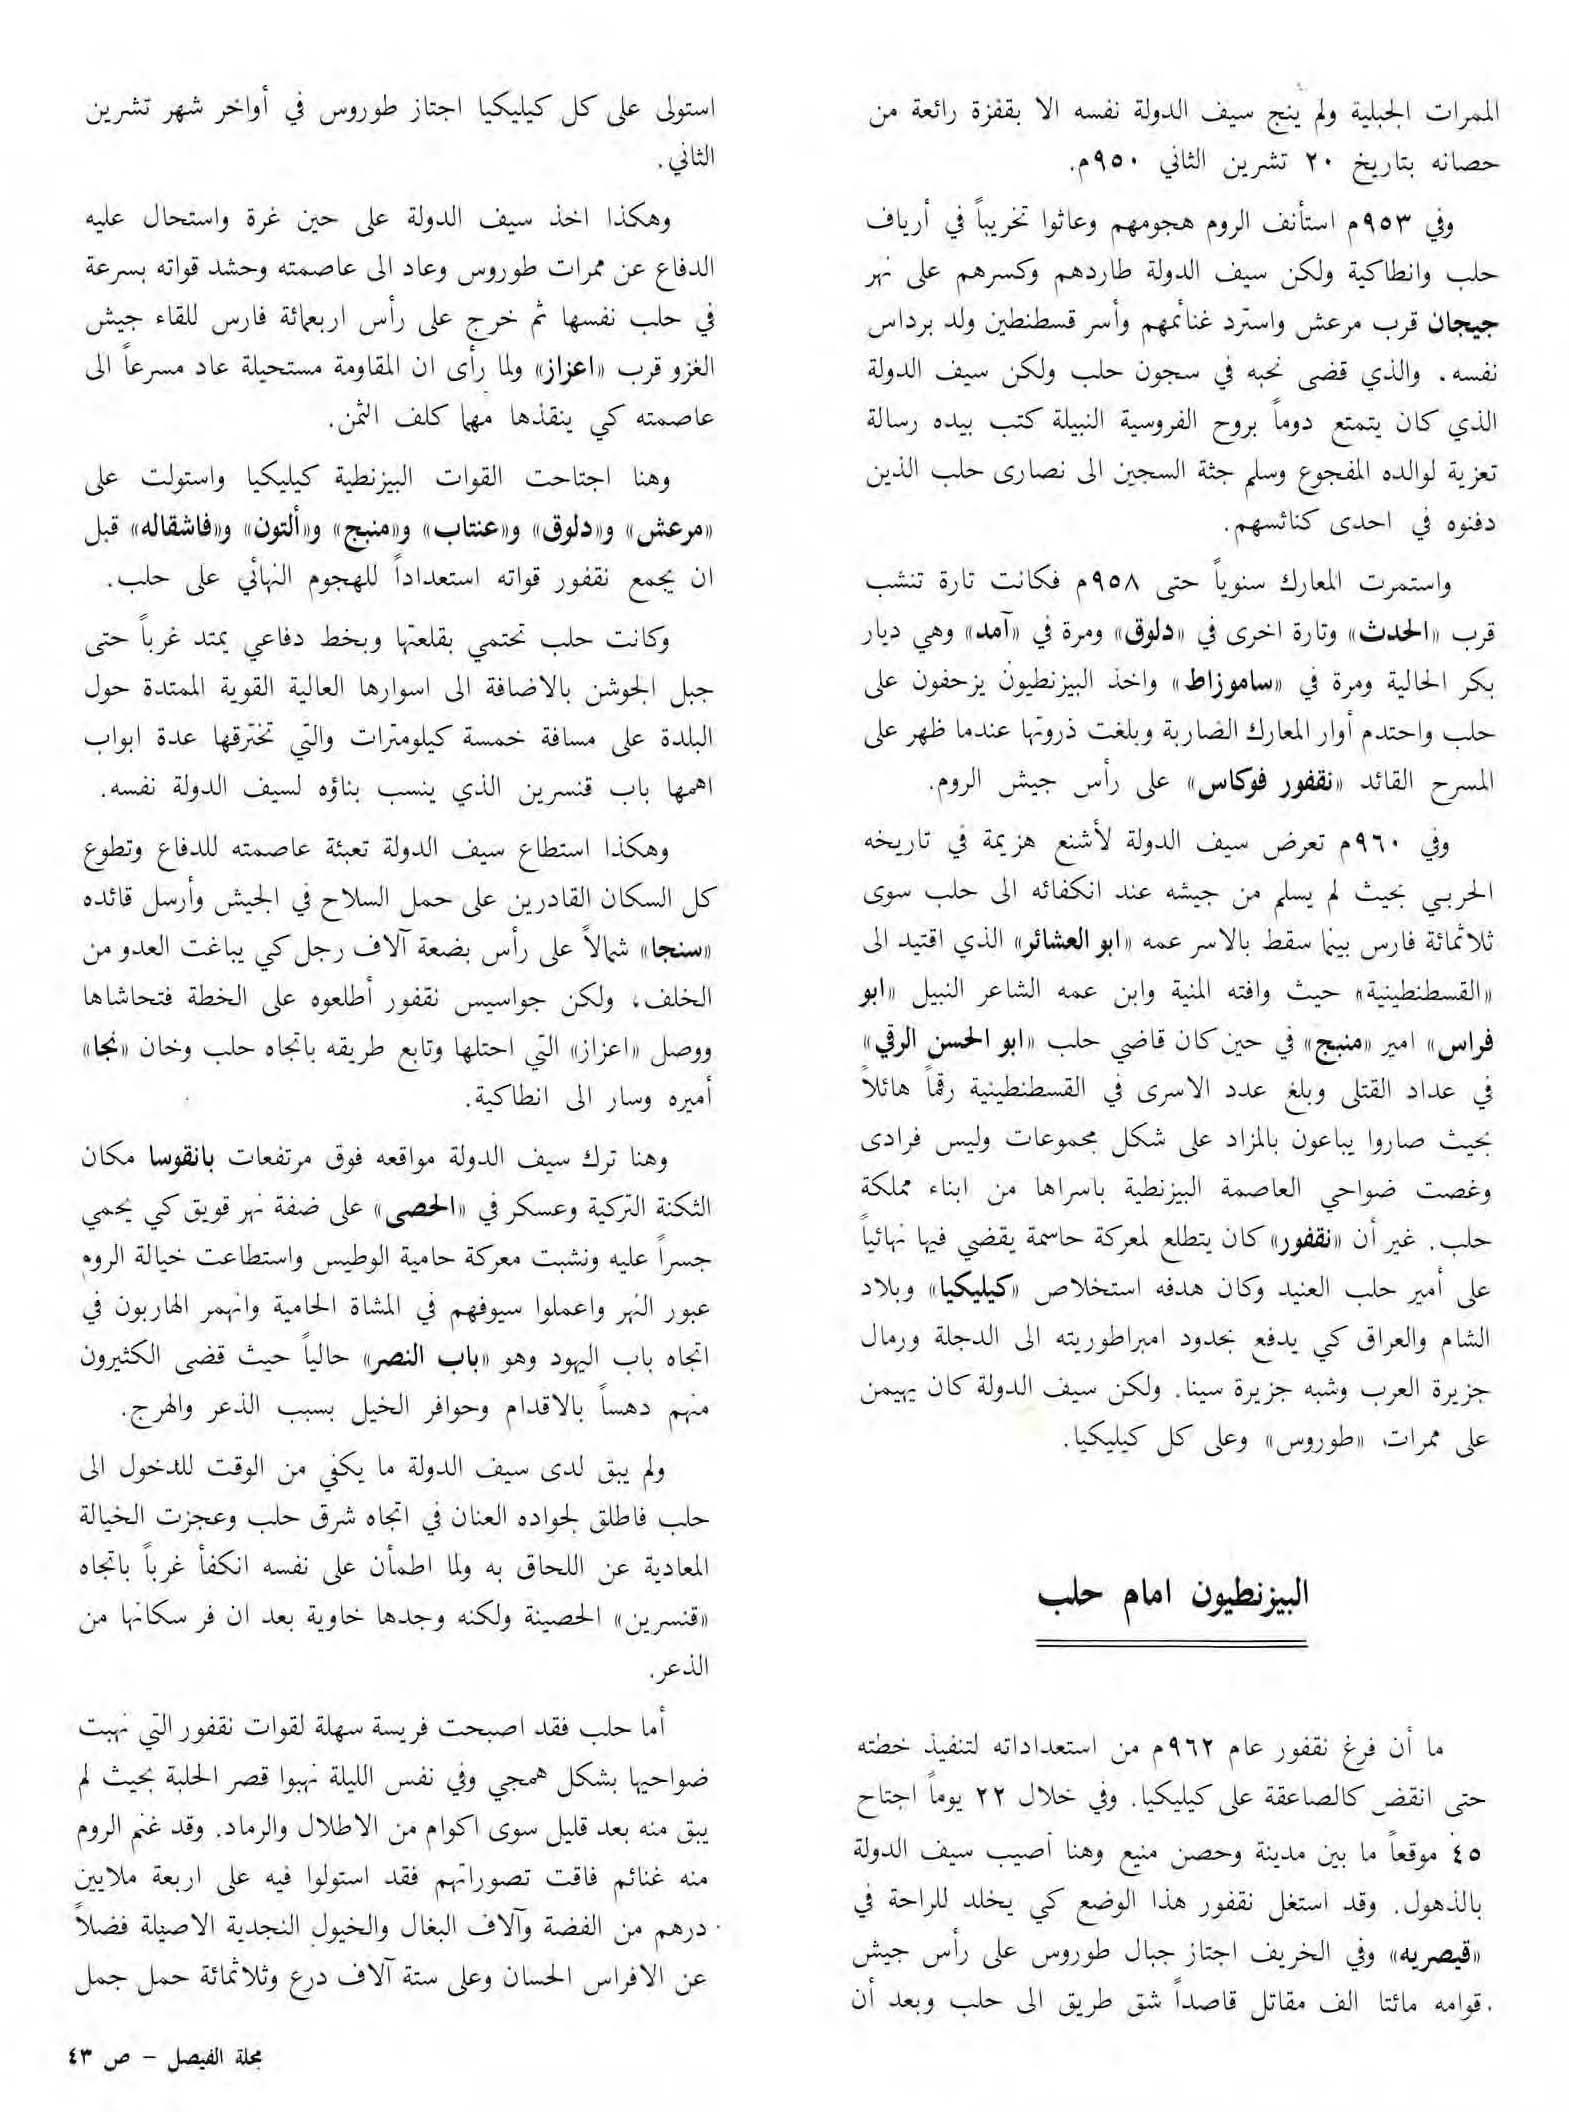 الممرات الجبلية ولم ينج سيف الدولة نفسه الا بقفزة رائعة من
حصانه بتاريخ ٢٠ تشرين الثاني ٩٥٠م.
وفي ٩٥٣م استأنف الروم هجومهم وعاثوا تخريباً في أرياف
حلب وانطاكية ولكن سيف الدولة طاردهم وكسرهم على نهر
جيجان قرب مرعش واسترد غنائمهم وأسر قسطنطين ولد برداس
نفسه. والذي قضى نحبه في سجون حلب ولكن سيف الدولة
الذي كان يتمتع دوماً بروح الفروسية النبيلة كتب بيده رسالة
تعزية لوالده المفجوع وسلم جثة السجين الى نصارى حلب الذين
دفنوه في احدى كنائسهم.
واستمرت المعارك سنوياً حتى ٩٥٨م فكانت تارة تنشب
قرب «الحدث» وتارة اخرى في «دلوق» ومرة في «آمد» وهي ديار
بكر الحالية ومرة في «ساموزاط» واخذ البيزنطيون يزحفون على
حلب واحتدم أوار المعارك الضاربة وبلغت ذروتها عندما ظهر على
المسرح القائد «نقفور فوكاس» على رأس جيش الروم.
وفي ٩٦٠م تعرض سيف الدولة لأشنع هزيمة في تاريخه
الحربي بحيث لم يسلم من جيشه عند انكفائه الى حلب سوى
ثلاثمائة فارس بينما سقط بالاسر عمه «ابو العشائر» الذي اقتيد الى
«القسطنطينية» حيث وافته المنية وابن عمه الشاعر النبيل «ابو
فراس» امير «منبج» في حين كان قاضي حلب «ابو الحسن الرقي»
في عداد القتلى وبلغ عدد الاسرى في القسطنطينية رقماً هائلاً
بحيث صاروا يباعون بالمزاد على شكل مجموعات وليس فرادى
وغصت ضواحي العاصمة البيزنطية باسراها من ابناء مملكة
حلب. غير أن «نقفور» كان يتطلع لمعركة حاسمة يقضي فيها نهائياً
على أمير حلب العنيد وكان هدفه استخلاص «كيليكيا» وبلاد
الشام والعراق كي يدفع بحدود امبراطوريته الى الدجلة ورمال
جزيرة العرب وشبه جزيرة سينا. ولكن سيف الدولة كان يهيمن
على ممرات «طوروس» وعلى كل كيليكيا.
البيزنطيون امام حلب
ما أن فرغ نقفور عام ٩٦٢م من استعداداته لتنفيذ خطته
حتى انقض كالصاعقة على كيليكيا. وفي خلال ٢٢ يوماً اجتاح
٤٥ موقعاً ما بين مدينة وحصن منيع وهنا أصيب سيف الدولة
بالذهول. وقد استغل نقفور هذا الوضع كي يخلد للراحة في
«قيصريه» وفي الخريف اجتاز جبال طوروس على رأس جيش
قوامه مائتا الف مقاتل قاصداً شق طريق الى حلب وبعد أن
استولى على كل كيليكيا اجتاز طوروس في أواخر شهر تشرين
الثاني.
وهكذا اخذ سيف الدولة على حين غرة واستحال عليه
الدفاع عن ممرات طوروس وعاد الى عاصمته وحشد قواته بسرعة
في حلب نفسها ثم خرج على رأس اربعمائة فارس للقاء جيش
الغزو قرب «اعزاز» ولما رأى ان المقاومة مستحيلة عاد مسرعاً الى
عاصمته كي ينقذها مهما كلف الثمن.
وهنا اجتاحت القوات البيزنطية كيليكيا واستولت على
«مرعش» و«دلوق» و«عنتاب» و«منبج» و«ألتون» و«فاشقاله» قبل
ان يجمع نقفور قواته استعداداً للهجوم النهائي على حلب.
وكانت حلب تحتمي بقلعتها وبخط دفاعي يمتد غرباً حتى
جبل الجوشن بالاضافة الى اسوارها العالية القوية الممتدة حول
البلدة على مسافة خمسة كيلومترات والتي تخترقها عدة ابواب
اهمها باب قنسرين الذي ينسب بناؤه لسيف الدولة نفسه.
وهكذا استطاع سيف الدولة تعبئة عاصمته للدفاع وتطوع
كل السكان القادرين على حمل السلاح في الجيش وأرسل قائده
«سنجا» شمالاً على رأس بضعة آلاف رجل كي يباغت العدو من
الخلف، ولكن جواسيس نقفور أطلعوه على الخطة فتحاشاها
ووصل «اعزاز» التي احتلها وتابع طريقه باتجاه حلب وخان «نجا»
أميره وسار الى انطاكية.
وهنا ترك سيف الدولة مواقعه فوق مرتفعات بانقوسا مكان
الثكنة التركية وعسكر في «الحصى» على ضفة نهر قويق كي يحمي
جسراً عليه ونشبت معركة حامية الوطيس واستطاعت خيالة الروم
عبور النهر واعملوا سيوفهم في المشاة الحامية وانهمر الهاربون في
اتجاه باب اليهود وهو «باب النصر» حالياً حيث قضى الكثيرون
منهم دهساً بالاقدام وحوافر الخيل بسبب الذعر والهرج.
ولم يبق لدى سيف الدولة ما يكفي من الوقت للدخول الى
حلب فاطلق لجواده العنان في اتجاه شرق حلب وعجزت الخيالة
المعادية عن اللحاق به ولما اطمأن على نفسه انكفأ غرباً باتجاه
«قنسرين» الحصينة ولكنه وجدها خاوية بعد ان فر سكانها من
الذعر.
أما حلب فقد اصبحت فريسة سهلة لقوات نقفور التي نهبت
ضواحيها بشكل همجي وفي نفس الليلة نهبوا قصر الحلبة بحيث لم
يبق منه بعد قليل سوى اكوام من الاطلال والرماد. وقد غنم الروم
منه غنائم فاقت تصوراتهم فقد استولوا فيه على اربعة ملايين
درهم من الفضة وآلاف البغال والخيول النجدية الاصيلة فضلاً
عن الافراس الحسان وعلى ستة آلاف درع وثلاثمائة حمل جمل
مجلة الفيصل – ص ٤٣